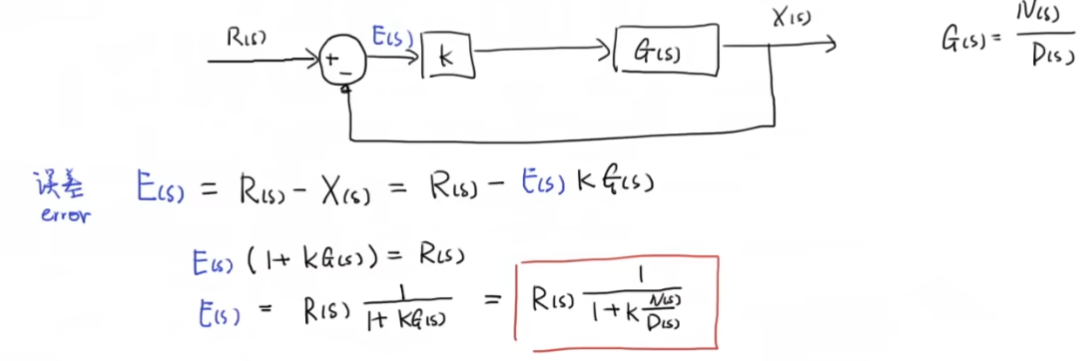 R(s) + − E(s) k G(s) X(s) G(s) = N(s) / D(s)
误差 E(s) = R(s) − X(s) = R(s) − E(s) K G(s)
error
E(s) (1 + kG(s)) = R(s)
E(s) = R(s) 1 / (1 + KG(s)) = R(s) 1 / (1 + k N(s)/D(s))